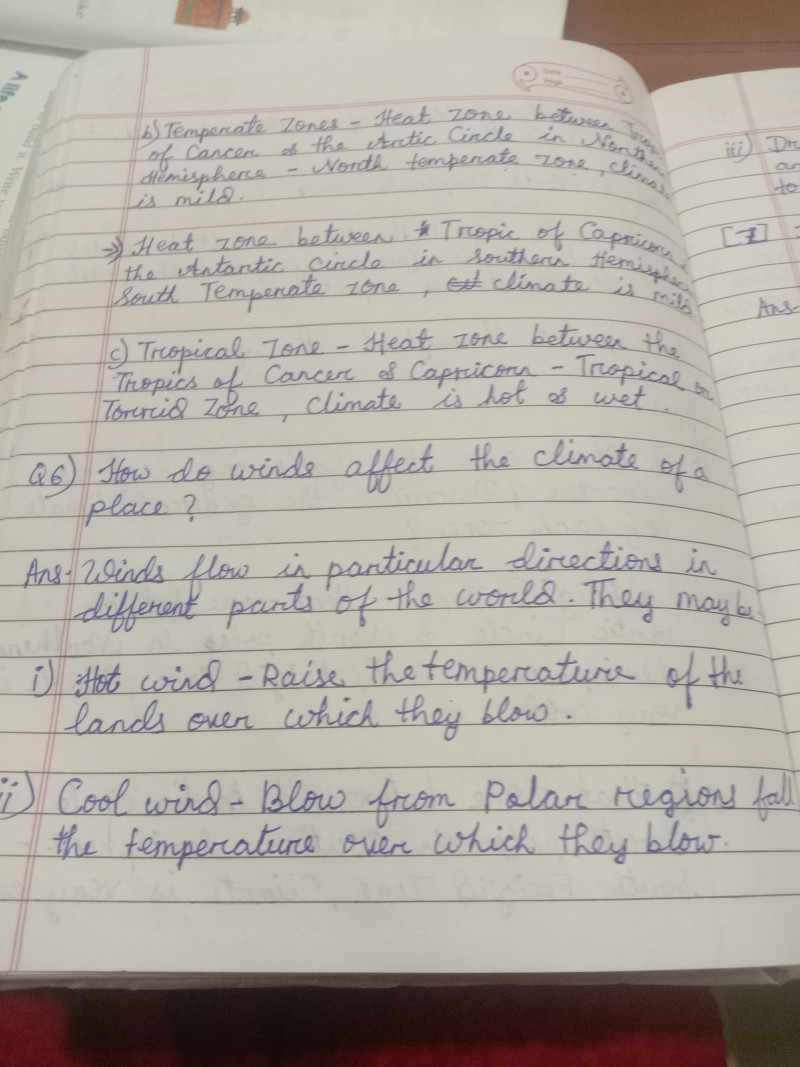 b) Temperate Zones - Heat zone between Trop
of Cancer & the Arctic Circle in Northern
Hemisphere - North temperate zone, climat
is mild.
→ Heat zone between Tropic of Capricorn
the Antartic Circle in southern Hemispher
South Temperate zone, climate is mild
c) Tropical Zone - Heat zone between the
Tropics of Cancer & Capricorn - Tropical or
Torrid Zone, Climate is hot & wet.
Q6) How do winds affect the climate of a
place?
Ans- Winds flow in particular directions in
different parts of the world. They may be
i) Hot wind - Raise the temperature of the
lands over which they blow.
ii) Cool wind - Blow from Polar regions fall
the temperature over which they blow.
iii) Dr
an
to
[7]
Ans-